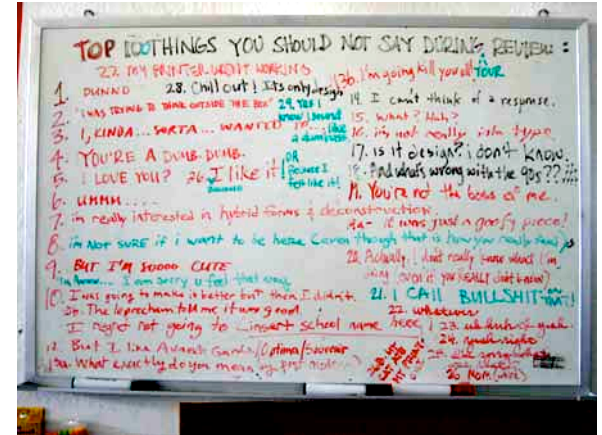 TOP 100 THINGS YOU SHOULD NOT SAY DURING YOUR REVIEW:
27. MY PRINTER WENT WORKING
136. I'm going kill you all
1. DUNNO
28. Chill out! Its only design
2. "I WAS TRYING TO THINK OUTSIDE THE BOX"
29. YES I know I sound like a dumbass
3. I, KINDA... SORTA... WANTED TO...
4. YOU'RE A DUMB-DUMB.
5. I LOVE YOU?
26. I like it!
OR Because I feel like it!
6. UMMM....
7. im really interested in hybrid forms & deconstruction.
8. im NOT SURE if i want to be here (even though that is how you really feel)
9. BUT I'M SOOOO CUTE
I am sorry u feel that way
10. I was going to make it better but then I didn't.
The leprechaun told me it was good.
I regret not going to (insert school name here)
12. But I like Avant Garde/Optima/Souvenir
13. What exactly do you mean by post modern?
14. I can't think of a response.
15. What? Huh?
16. im not really into type
17. is it design? i don't know.
18. And whats wrong with the 90s???
19. You're not the boss of me.
it was just a goofy piece!
20. Actually, I don't really know what I'm doing (even if you REALLY don't know)
21. I CALL BULLSHIT ON THAT!
22. whatever
23. uh huh
24. yeah right
26 MOM